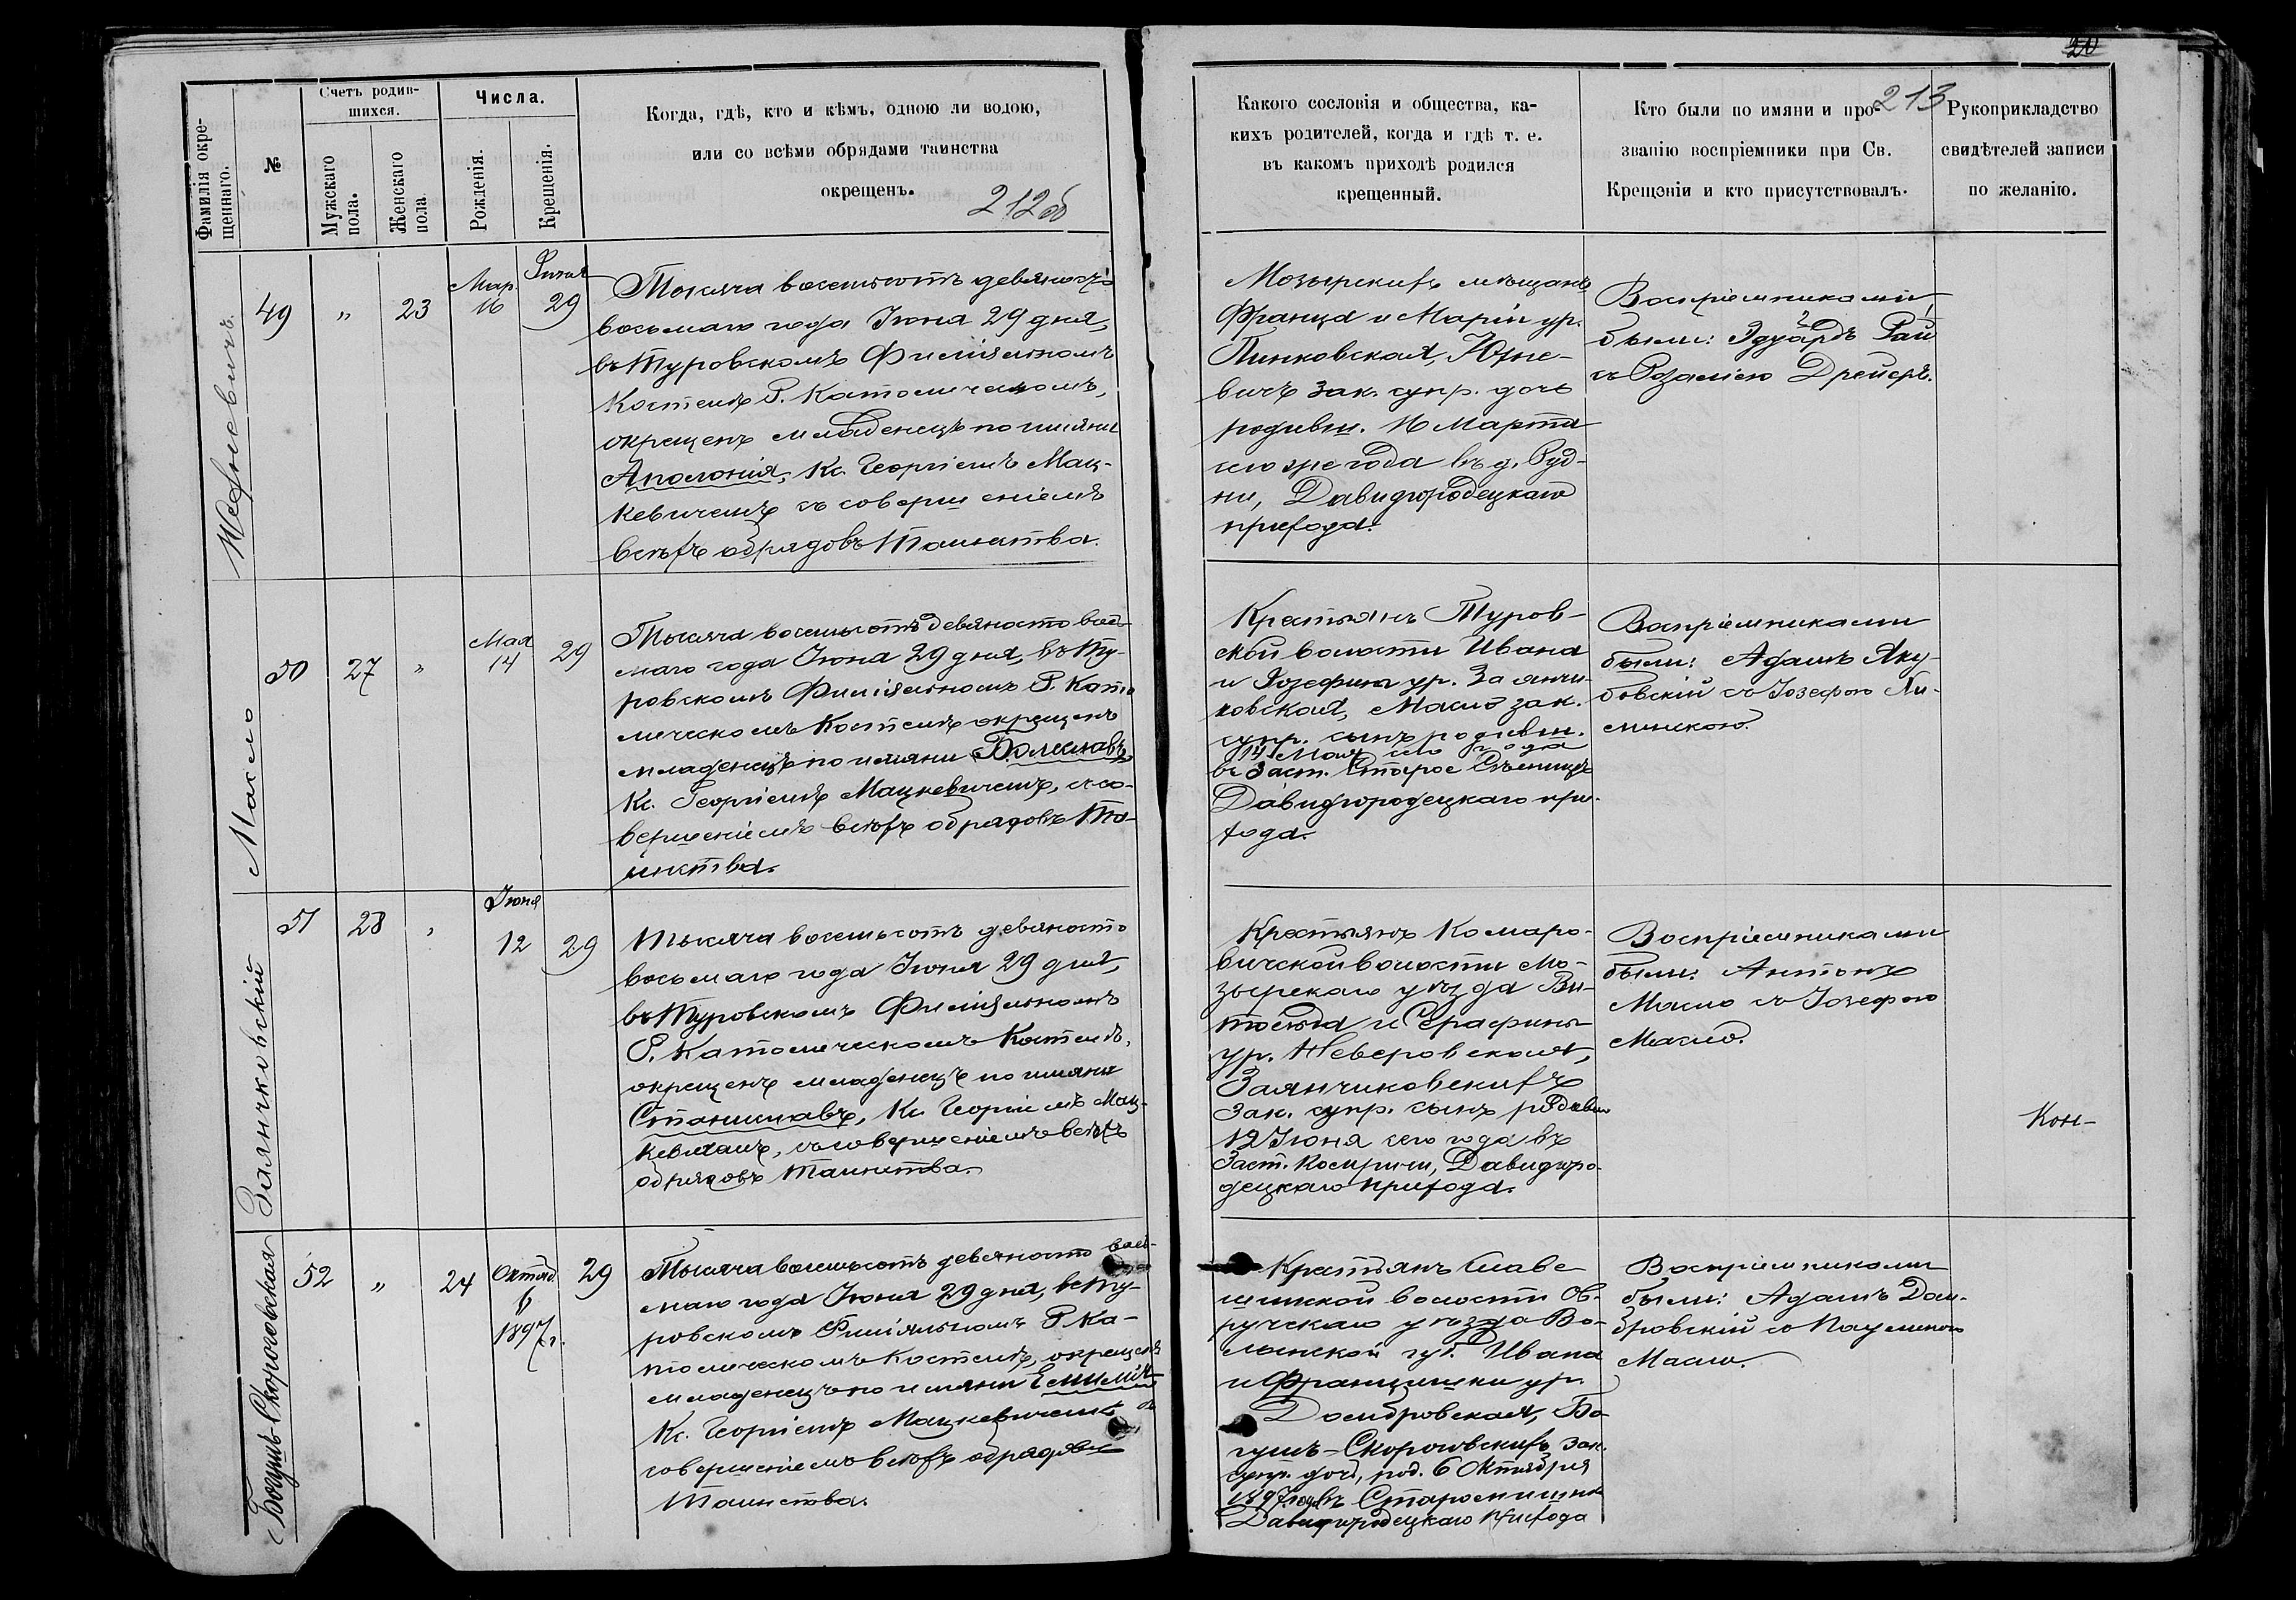 20
213
212об
Фамилія окре-
щеннаго.
№
Счетъ родив-
шихся.
Мужскаго
пола.
Женскаго
пола
Числа.
Рожденія.
Крещенія.
Когда, гдѣ, кто и кѣмъ, одною ли водою,
или со всѣми обрядами таинства
окрещенъ.
Какого сословія и общества, ка-
кихъ родителей, когда и гдѣ т. е.
въ какомъ приходѣ родился
крещенный.
Кто были по имяни и про-
званію воспріемники при Св.
Крещеніи и кто присутствовалъ.
Рукоприкладство
свидѣтелей записи
по желанію.
49
"
23
Мар.
16
Іюня
29
Тысяча восемьсотъ девяносто
восьмаго года Іюня 29 дня,
въ Туровскомъ Филіяльномъ
Костелѣ Р. Католическомъ,
окрещенъ младенецъ по имяни
Аполонія, Кс. Георгіемъ Мац-
кевичемъ съ совершеніемъ
всѣхъ обрядовъ Таинства.
Мозырскихъ мѣщанъ
Франца и Маріи ур.
Пинковская,
вичъ зак. супр. дочь
родивш. 16 Марта
сего же года въ д. Руд-
ни, Давидгородецкаго
прихода.
Воспріемниками
были: Эдуардъ Рай
съ Розаліею Дрейеръ.
Масло
50
27
"
Мая
14
29
Тысяча восемьсотъ девяносто вось-
маго года Іюня 29 дня, въ Ту-
ровскомъ Филіяльномъ Р. Като-
лическомъ Костелѣ окрещенъ
младенецъ по имяни Болеславъ,
Кс. Георгіемъ Мацкевичемъ, съ со-
вершеніемъ всѣхъ обрядовъ Та-
инства.
Крестьянъ Туров-
ской волости Ивана
и Іозефины ур. Заянчи-
ковская, Масло зак.
супр. сынъ родивш.
14 Мая сего года
въ Заст. Старое
Давидгородецкаго при-
хода.
Воспріемниками
были: Адамъ Яку-
бовскій съ Іозефою
Заянчковскій
51
28
"
Іюня
12
29
Тысяча восемьсотъ девяносто
восьмаго года Іюня 29 дня,
въ Туровскомъ Филіяльномъ
Р. Католическомъ Костелѣ,
окрещенъ младенецъ по имяни
Станиславъ, Кс. Георгіемъ Мац-
кевичемъ, съ совершеніемъ всѣхъ
обрядовъ Таинства.
Крестьянъ Комаро-
вичской волости Мо-
зырскаго уѣзда Ви-
тольда и Серафины
ур. Неверовская,
Заянчиковскихъ
зак. супр. сынъ родивш.
12 Іюня сего года въ
Заст. Давидгоро-
децкаго прихода.
Воспріемниками
были: Антонъ
Масло съ Іозефою
Масло.
Кон-
Богушъ-Скороговская
52
"
24
Октяб.
6
1897г.
29
Тысяча восемьсотъ девяносто вось-
маго года Іюня 29 дня, въ Ту-
ровскомъ Филіяльномъ Р. Ка-
толическомъ Костелѣ, окрещенъ
младенецъ по имяни Емилія
Кс. Георгіемъ Мацкевичемъ съ
совершеніемъ всѣхъ обрядовъ
Таинства.
Крестьянъ Славе-
шинской волости Ов-
ручскаго уѣзда Во-
лынской губ. Ивана
и Францишки ур.
Домбровская, Бо-
гушъ-Скороговскихъ зак.
супр. дочь, род. 6 Октября
1897 года въ
Давидгородецкаго прихода
Воспріемниками
были: Адамъ Дом-
бровскій съ Паулиною
Масло.